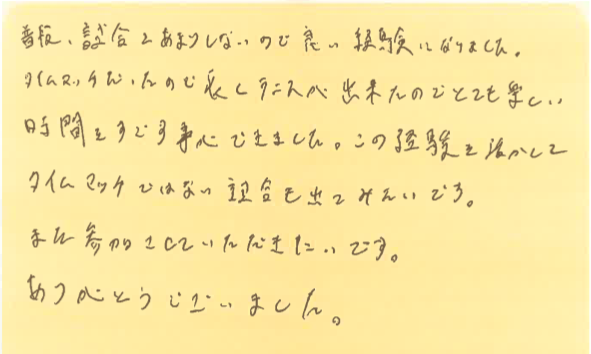 普段、試合をあまりしないので良い経験になりました。
タイムマッチだったので長くテニスが出来たのでとても楽しい
時間をすごす事ができました。この経験を活かして
タイムマッチではない試合も出てみたいです。
また参加させていただきたいです。
ありがとうございました。